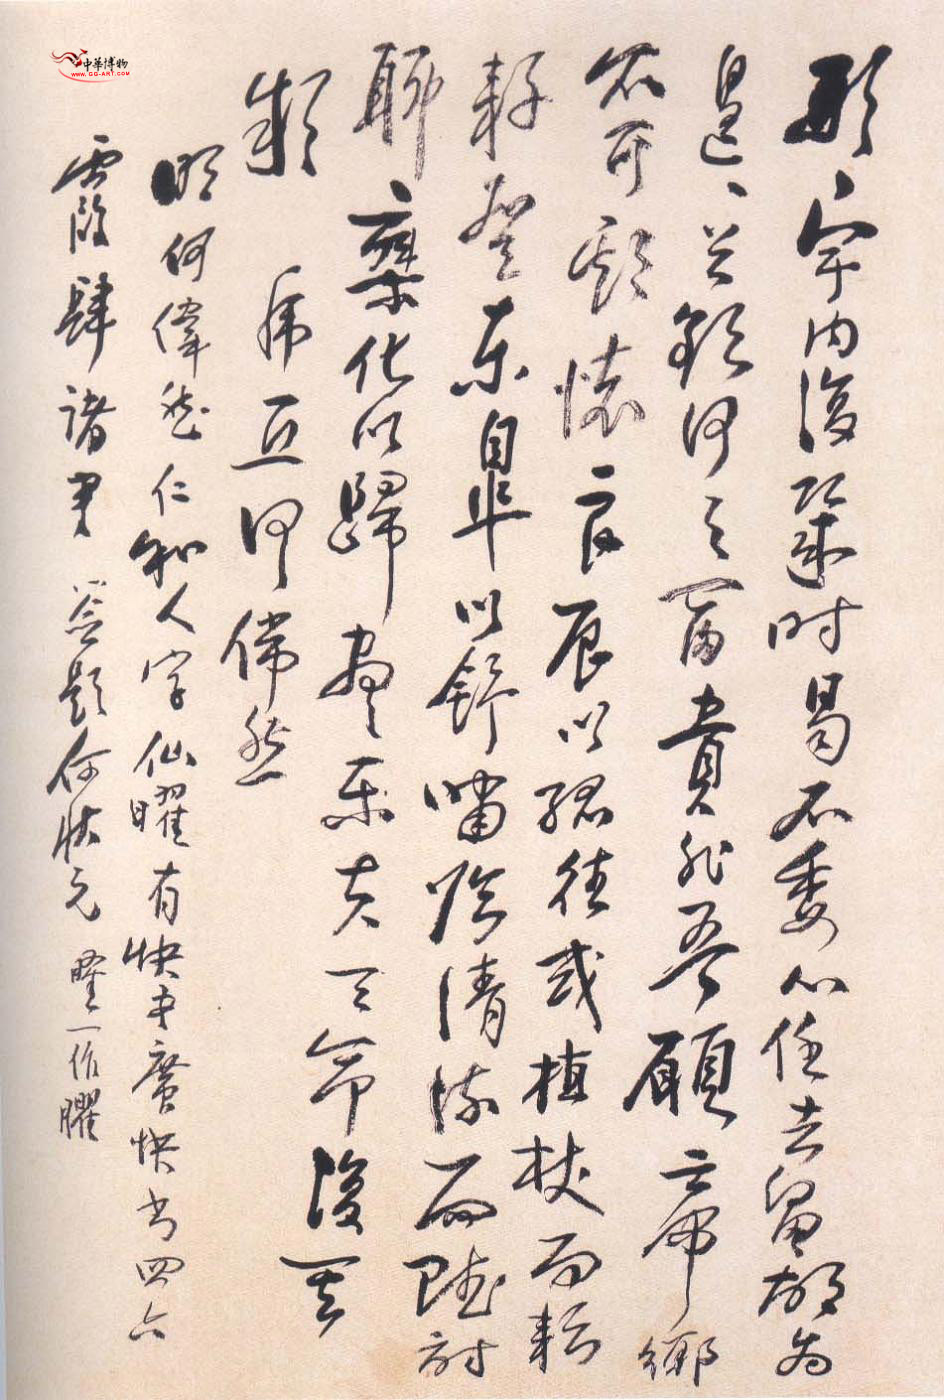 形宇内復幾時曷不委心任去留胡為
遑〻兮欲何之富貴非吾願帝鄉
不可期懷良辰以孤往或植杖而耘
耔登東皋以舒嘯臨清流而賦詩
聊乘化以歸盡樂夫天命復奚
疑 何偉然
明何偉然仁和人字仙曜有快書廣快書四六
霞肆諸書 題何狀元 一作臞
中華博物
www.gg-art.com